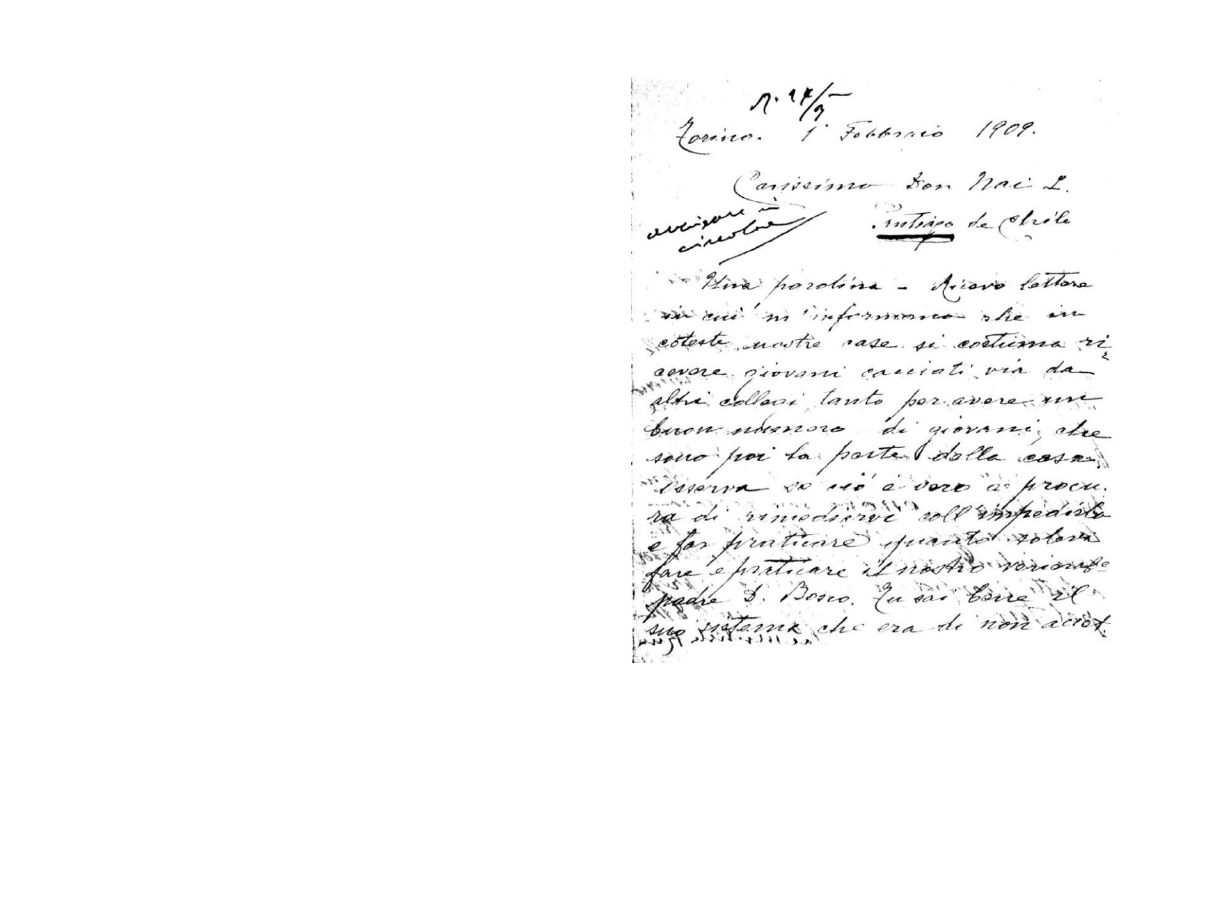 R. 24/9
Torino. 1° Febbraio 1909.
Carissimo Don Nai L.
Santiago de Chile
avvisare in
circolare
Una parolina - Ricevo lettere
in cui m'informano che in
coteste nostre case si costuma ri
cevere giovani cacciati via da
altri collegi tanto per avere un
buon numero di giovani, che
sono poi la peste della casa.
Osserva se ciò è vero e procu.
ra di rimediarvi coll'impedirlo
e far praticare quanto soleva
fare e praticare il nostro venerato
padre D. Bosco. Tu sai bene il
suo sistema che era di non accet.